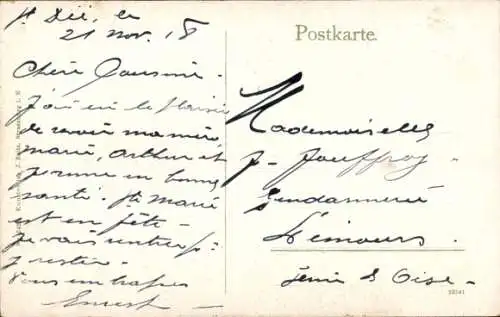 St Dié, le
21 nov. 18
Chère Cousine -
J'ai eu le plaisir
de revoir ma mère,
marie, Arthur et
Jeanne en bonne
santé. Ste Marie
est en fête -
Je vais rentrer
y rester -
Vous embrasse
Ernest
Postkarte.
Mademoiselle
J. Jouffroy -
Gendarmerie
Limours.
Seine & Oise -